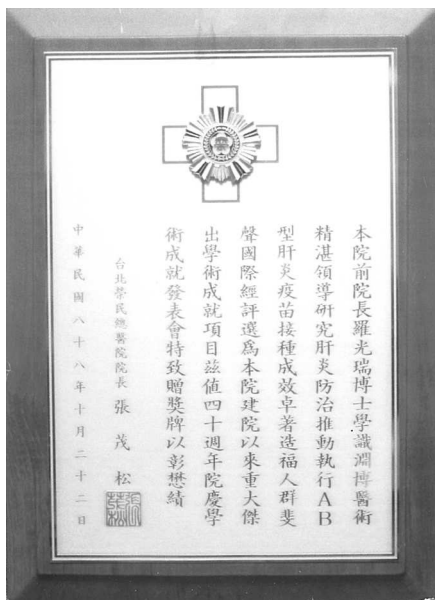 本院前院長羅光瑞博士學識淵博醫術
精湛領導研究肝炎防治推動執行AB
型肝炎疫苗接種成效卓著造福人群斐
聲國際經評選為本院建院以來重大傑
出學術成就項目茲值四十週年院慶學
術成就發表會特致贈獎牌以彰懋績
台北榮民總醫院院長 張茂松
中華民國八十八年十月二十二日